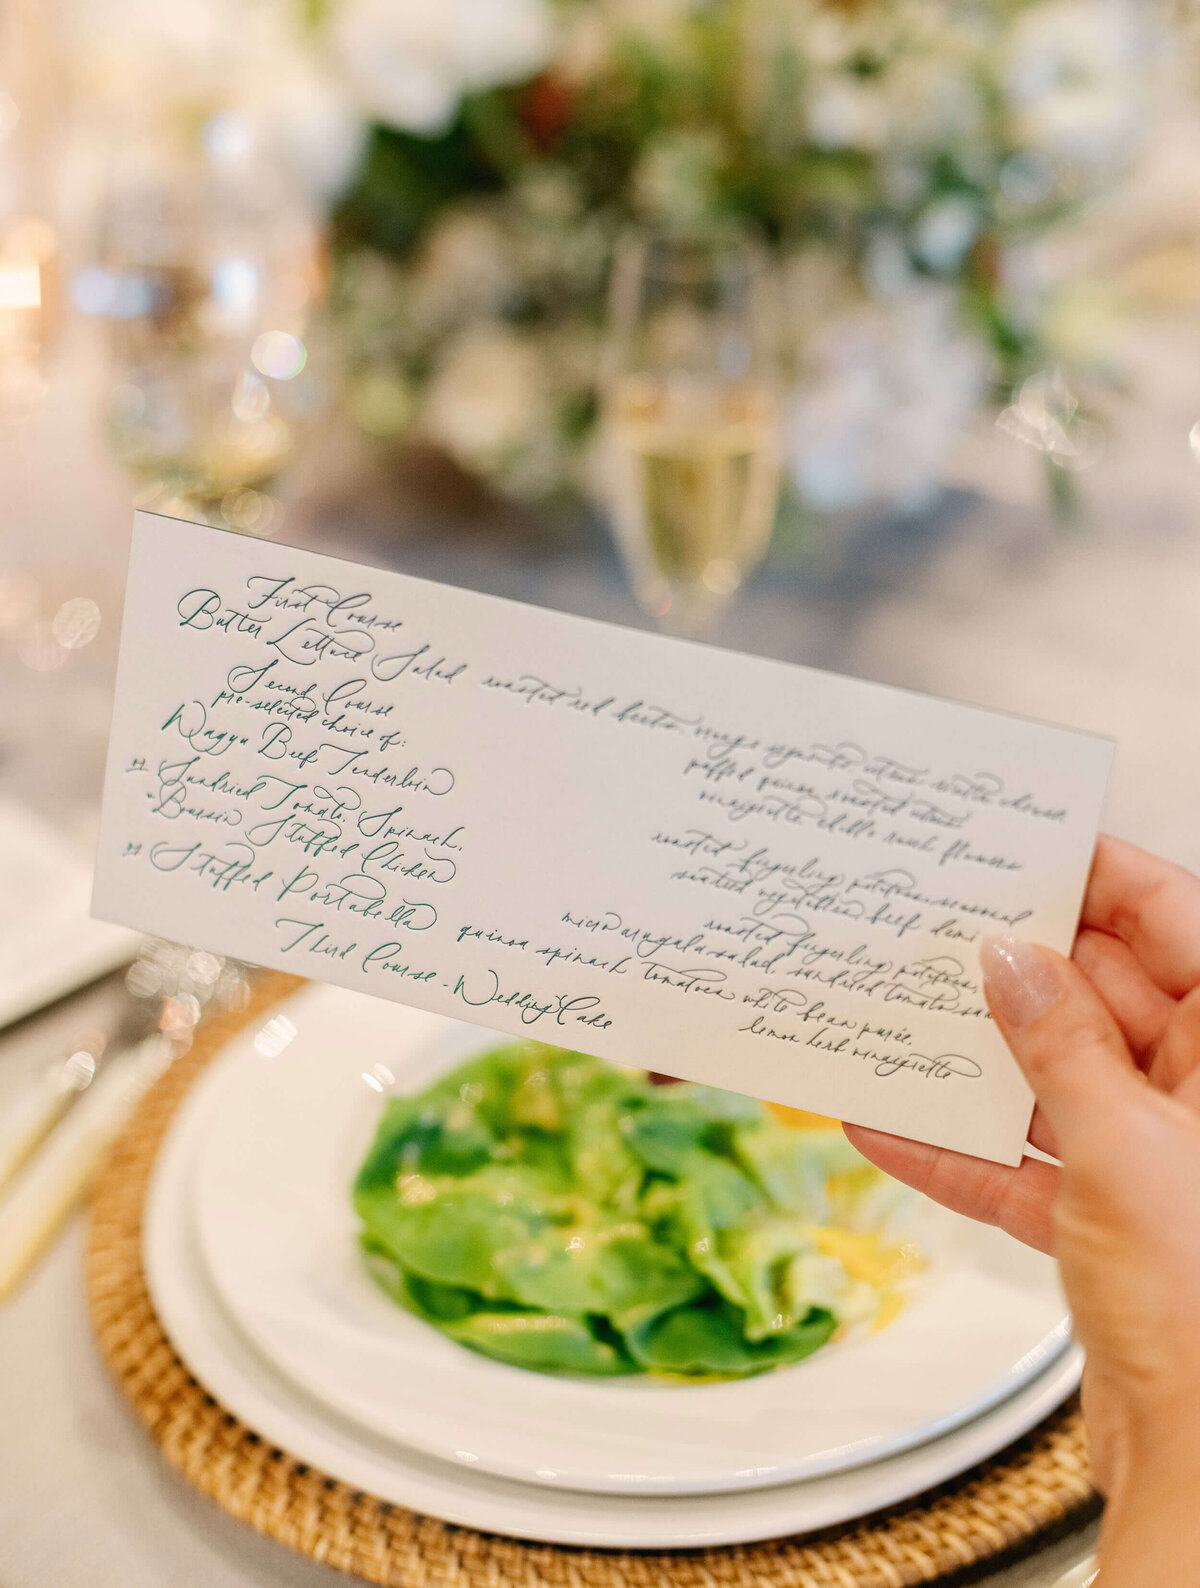 First Course
Butter Lettuce Salad roasted red beets, orange segments, citrus ricotta cheese,
puffed quinoa, roasted
vinaigrette, edible flowers
Second Course
pre-selected choice of:
Wagyu Beef Tenderloin
roasted fingerling potatoes, seasonal
sautéed vegetables, beef demi
Sundried Tomato, Spinach,
Boursin Stuffed Chicken
roasted fingerling potatoes,
micro arugula salad, sundried tomato
Stuffed Portabella quinoa spinach tomatoes white bean purée,
lemon herb vinaigrette
Third Course - Wedding Cake